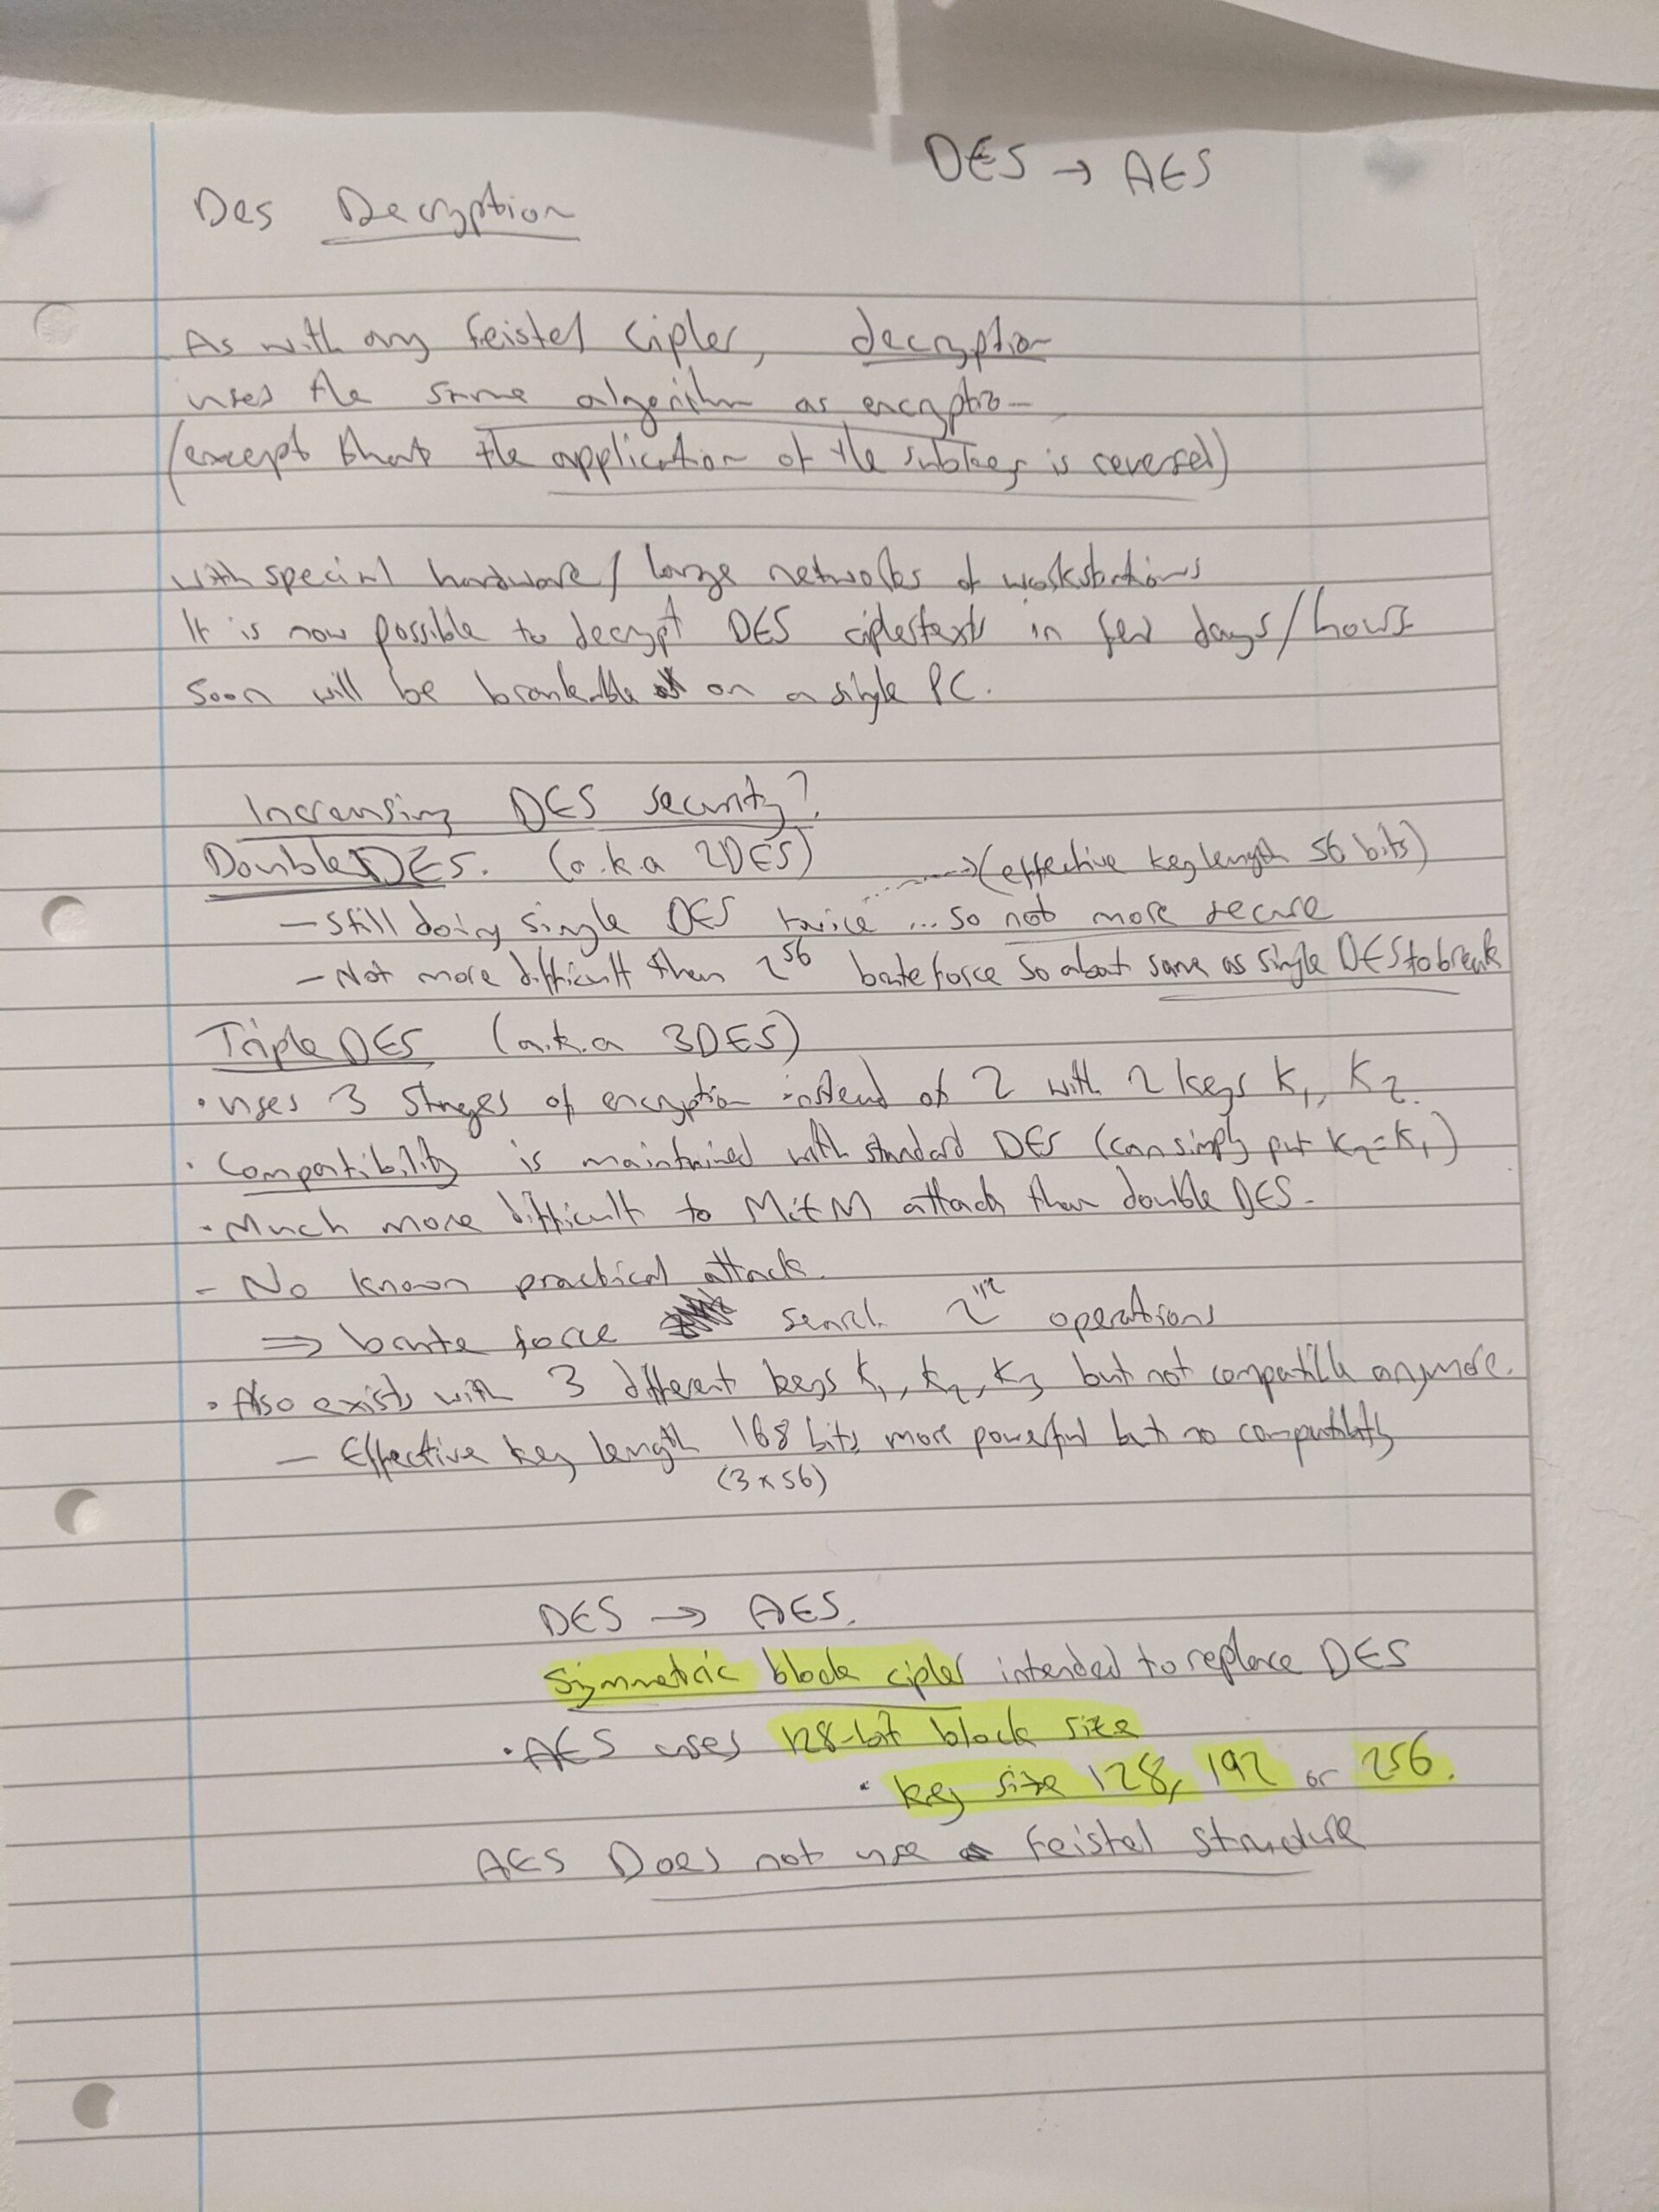 DES → AES
Des Decryption
As with any feistel cipher, decryption
uses the same algorithm as encryption
(except that the application of the subkeys is reversed)
with special hardware/large networks of workstations
It is now possible to decrypt DES ciphertexts in few days/hours
soon will be breakable on a single PC.
Increasing DES security?
Double DES. (a.k.a 2DES)
→(effective key length 56 bits)
- Still doing single DES twice ... so not more secure
- Not more difficult than 2^56 brute force so about same as single DES to break
Triple DES (a.k.a 3DES)
· uses 3 stages of encryption instead of 2 with 2 keys K1, K2.
· Compatibility is maintained with standard DES (can simply put K2=K1)
· Much more difficult to MitM attack than double DES.
- No known practical attack.
⇒ brute force search 2^112 operations
· Also exists with 3 different keys K1, K2, K3 but not compatible anymore.
- Effective key length 168 bits more powerful but no compatibility
(3 x 56)
DES → AES.
Symmetric block cipher intended to replace DES
· AES uses 128-bit block size
· key size 128, 192 or 256.
AES Does not use a feistel structure